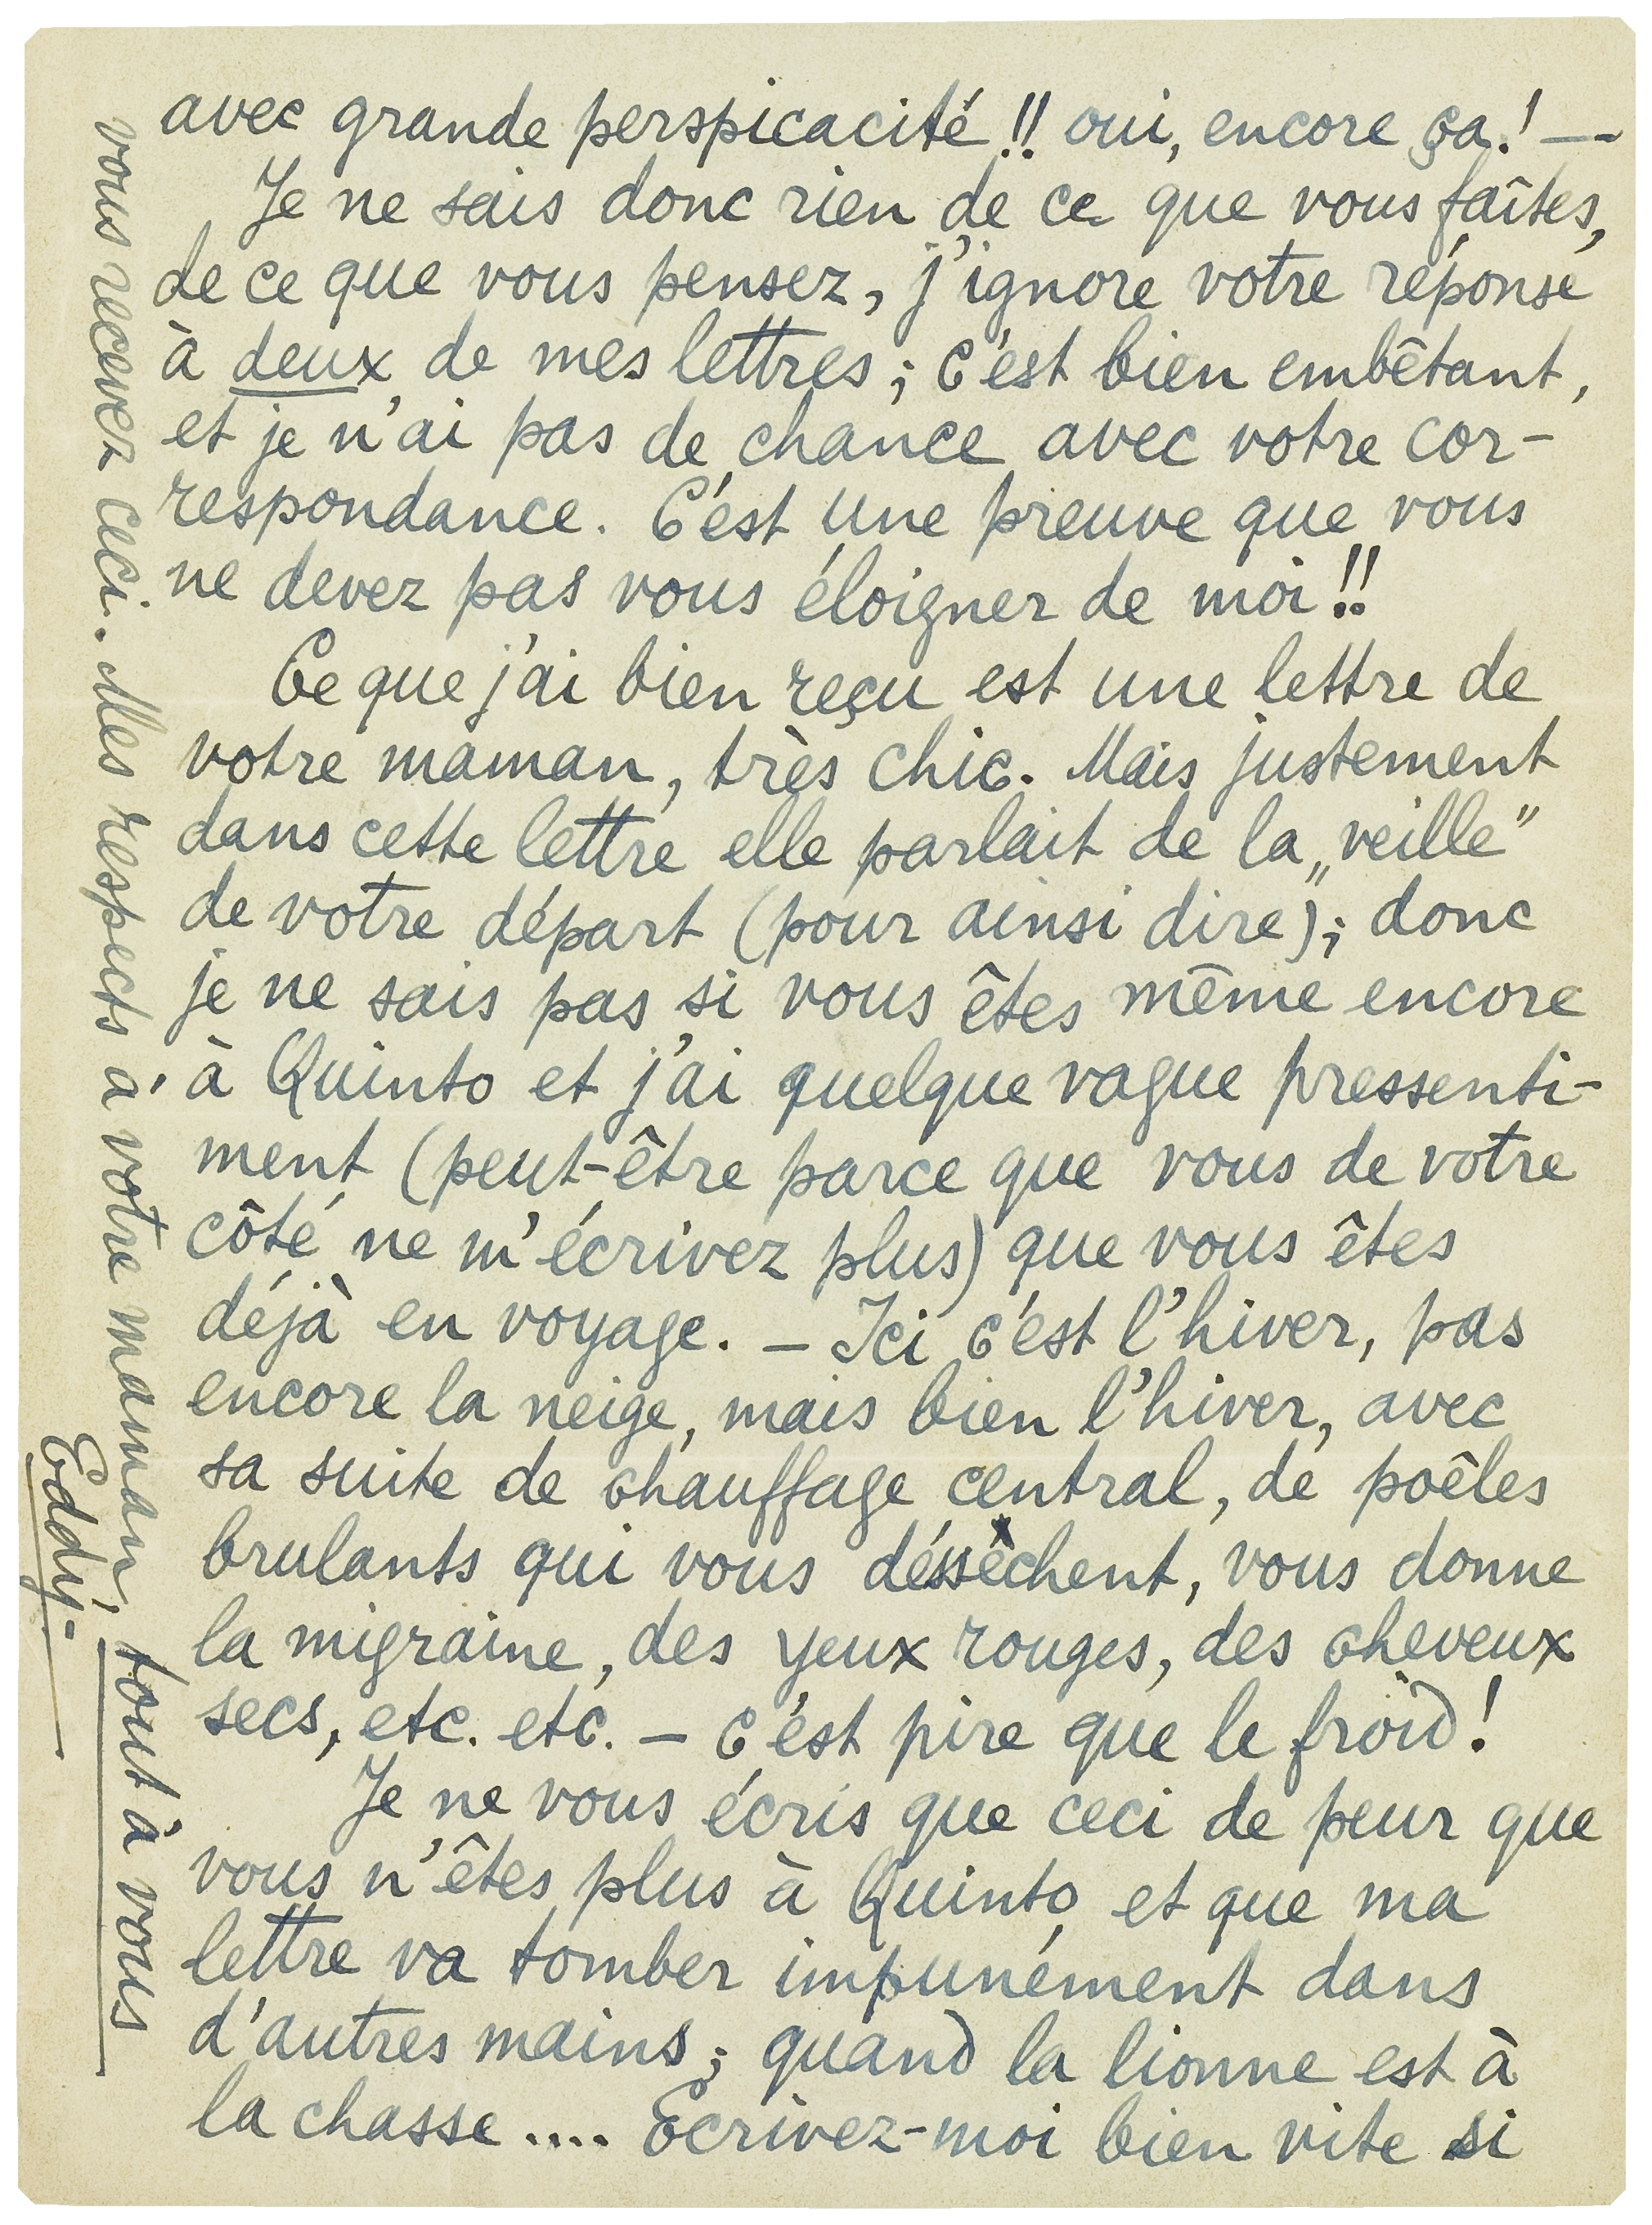 avec grande perspicacité!! oui, encore ça! —
Je ne sais donc rien de ce que vous faîtes,
de ce que vous pensez, j'ignore votre réponse
à deux de mes lettres; c'est bien embêtant,
et je n'ai pas de chance avec votre cor-
respondance. C'est une preuve que vous
ne devez pas vous éloigner de moi!!
Ce que j'ai bien reçu est une lettre de
votre maman, très chic. Mais justement
dans cette lettre elle parlait de la „veille”
de votre départ (pour ainsi dire); donc
je ne sais pas si vous êtes même encore
à Quinto et j'ai quelque vague pressenti-
ment (peut-être parce que vous de votre
côté ne m'écrivez plus) que vous êtes
déjà en voyage. — Ici c'est l'hiver, pas
encore la neige, mais bien l'hiver, avec
sa suite de chauffage central, de poêles
brulants qui vous déssêchent, vous donne
la migraine, des yeux rouges, des cheveux
secs, etc. etc. — c'est pire que le froid!
Je ne vous écris que ceci de peur que
vous n'êtes plus à Quinto et que ma
lettre va tomber impunément dans
d'autres mains; quand la lionne est à
la chasse.... Ecrivez-moi bien vite si
vous recevez ceci. Mes respects à votre maman, tout à vous
Eddy-